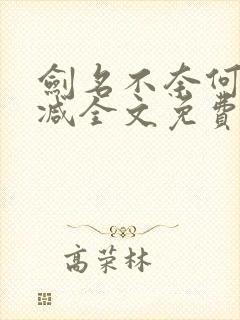 劍名不奈何
減全文免費
高荣林